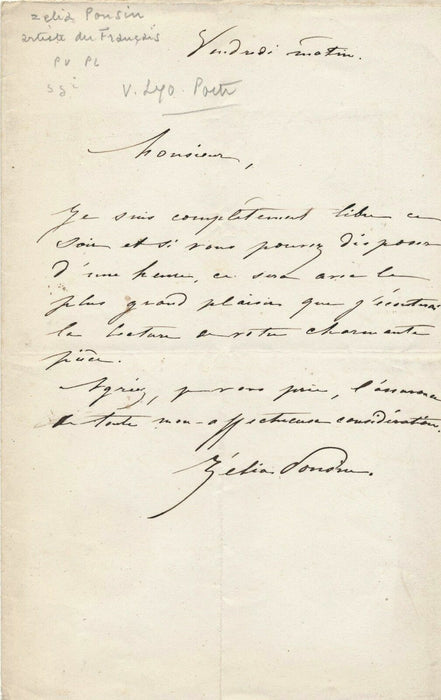 Zelia Ponsin
artiste du Français
PV PL
V. Lyo. Porte
Vendredi matin.
Monsieur,
Je suis complètement libre ce
soir et si vous pouvez disposer
d'une heure, ce sera avec le
plus grand plaisir que j'écouterai
la lecture de votre charmante
pièce.
Agréez, je vous prie, l'assurance
de toute mon affectueuse considération.
Zélia Ponsin.